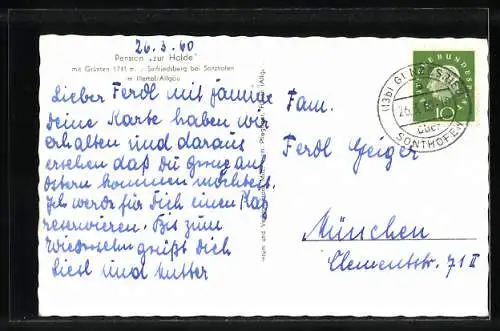 26.3.60
Pension „zur Halde"
mit Grünten 1741 m. Seifriedsberg bei Sonthofen
im Illertal/Allgäu
Lieber Ferdl mit famine
Deine Karte haben wir
erhalten und daraus
ersehen daß Du gmog auf
Ostern kommen möchtest.
Ich werde für Dich einen Plaz
reservieren. Bis zum
Wiedersehn grüßt Dich
Liesl und Mutter
Fam.
Ferdl Geiger
München
Clemensstr. 71 II
DEUTSCHE BUNDESPOST
10
(13b)
26.
über
SONTHOFEN